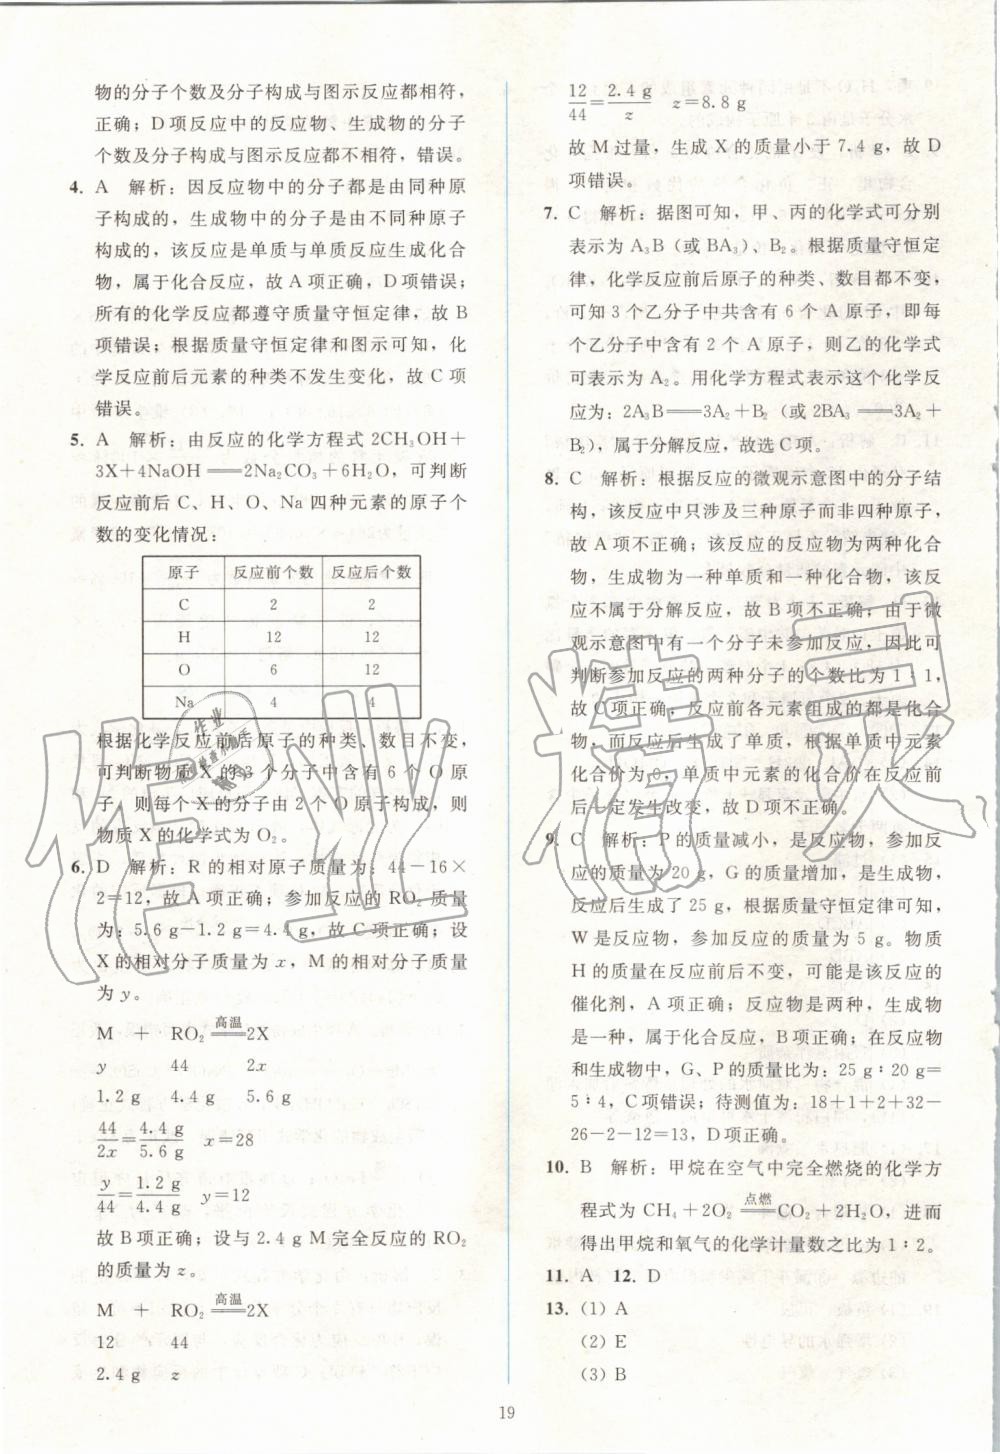 物的分子个数及分子构成与图示反应都相符,
正确;D项反应中的反应物、生成物的分子
个数及分子构成与图示反应不相符,错误。
4. A 解析:因反应物中的分子都是由同种原
子构成的,生成物中的分子是由不同种原子
构成的,该反应是单质与单质反应生成化合
物,属于化合反应,故A项正确,D项错误;
所有的化学反应都遵守质量守恒定律,故B
项错误;根据质量守恒定律和图示可知,化
学反应前后元素的种类不发生变化,故C项
错误。
5. A 解析:由反应的化学方程式2CH₃OH+
3X+4NaOH══2Na₂CO₃+6H₂O,可判断
反应前后C、H、O、Na四种元素的原子个
数的变化情况:
原子 反应前个数 反应后个数
C 2 2
H 12 12
O 6 12
Na 4 4
根据化学反应前后原子的种类、数目不变,
可判断物质X的3个分子中含有6个O原
子,则每个X的分子由2个O原子构成,则
物质X的化学式为O₂。
6. D 解析:R的相对原子质量为:44-16×
2=12,故A项正确;参加反应的RO₂质量
为:5.6 g-1.2 g=4.4 g,故C项正确;设
X的相对分子质量为x,M的相对分子质量
为y。
M + RO₂ 高温══ 2X
y 44 2x
1.2 g 4.4 g 5.6 g
44/2x=4.4 g/5.6 g x=28
y/44=1.2 g/4.4 g y=12
故B项正确;设与2.4 g M完全反应的RO₂
的质量为z。
M + RO₂ 高温══ 2X
12 44
2.4 g z
12/44=2.4 g/z z=8.8 g
故M过量,生成X的质量小于7.4 g,故D
项错误。
7. C 解析:据图可知,甲、丙的化学式可分别
表示为A₃B(或BA₃)、B₂。根据质量守恒定
律,化学反应前后原子的种类、数目都不变,
可知3个乙分子中共含有6个A原子,即每
个乙分子中含有2个A原子,则乙的化学式
可表示为A₂。用化学方程式表示这个化学反
应为:2A₃B══3A₂+B₂(或2BA₃══3A₂+
B₂),属于分解反应,故选C项。
8. C 解析:根据反应的微观示意图中的分子结
构,该反应中只涉及三种原子而非四种原子,
故A项不正确;该反应的反应物为两种化合
物,生成物为一种单质和一种化合物,该反
应不属于分解反应,故B项不正确;由于微
观示意图中有一个分子未参加反应,因此可
判断参加反应的两种分子的个数比为1∶1,
故C项正确;反应前各元素组成的都是化合
物,而反应后生成了单质,根据单质中元素
化合价为0,单质中元素的化合价在反应前
后一定发生改变,故D项不正确。
9. C 解析:P的质量减小,是反应物,参加反
应的质量为20 g,G的质量增加,是生成物,
反应后生成了25 g,根据质量守恒定律可知,
W是反应物,参加反应的质量为5 g。物质
H的质量在反应前后不变,可能是该反应的
催化剂,A项正确;反应物是两种,生成物
是一种,属于化合反应,B项正确;在反应物
和生成物中,G、P的质量比为:25 g∶20 g=
5∶4,C项错误;待测值为:18+1+2+32-
26-2-12=13,D项正确。
10. B 解析:甲烷在空气中完全燃烧的化学方
程式为CH₄+2O₂ 点燃══ CO₂+2H₂O,进而
得出甲烷和氧气的化学计量数之比为1∶2。
11. A 12. D
13. (1) A
(2) E
(3) B
19
作业精灵